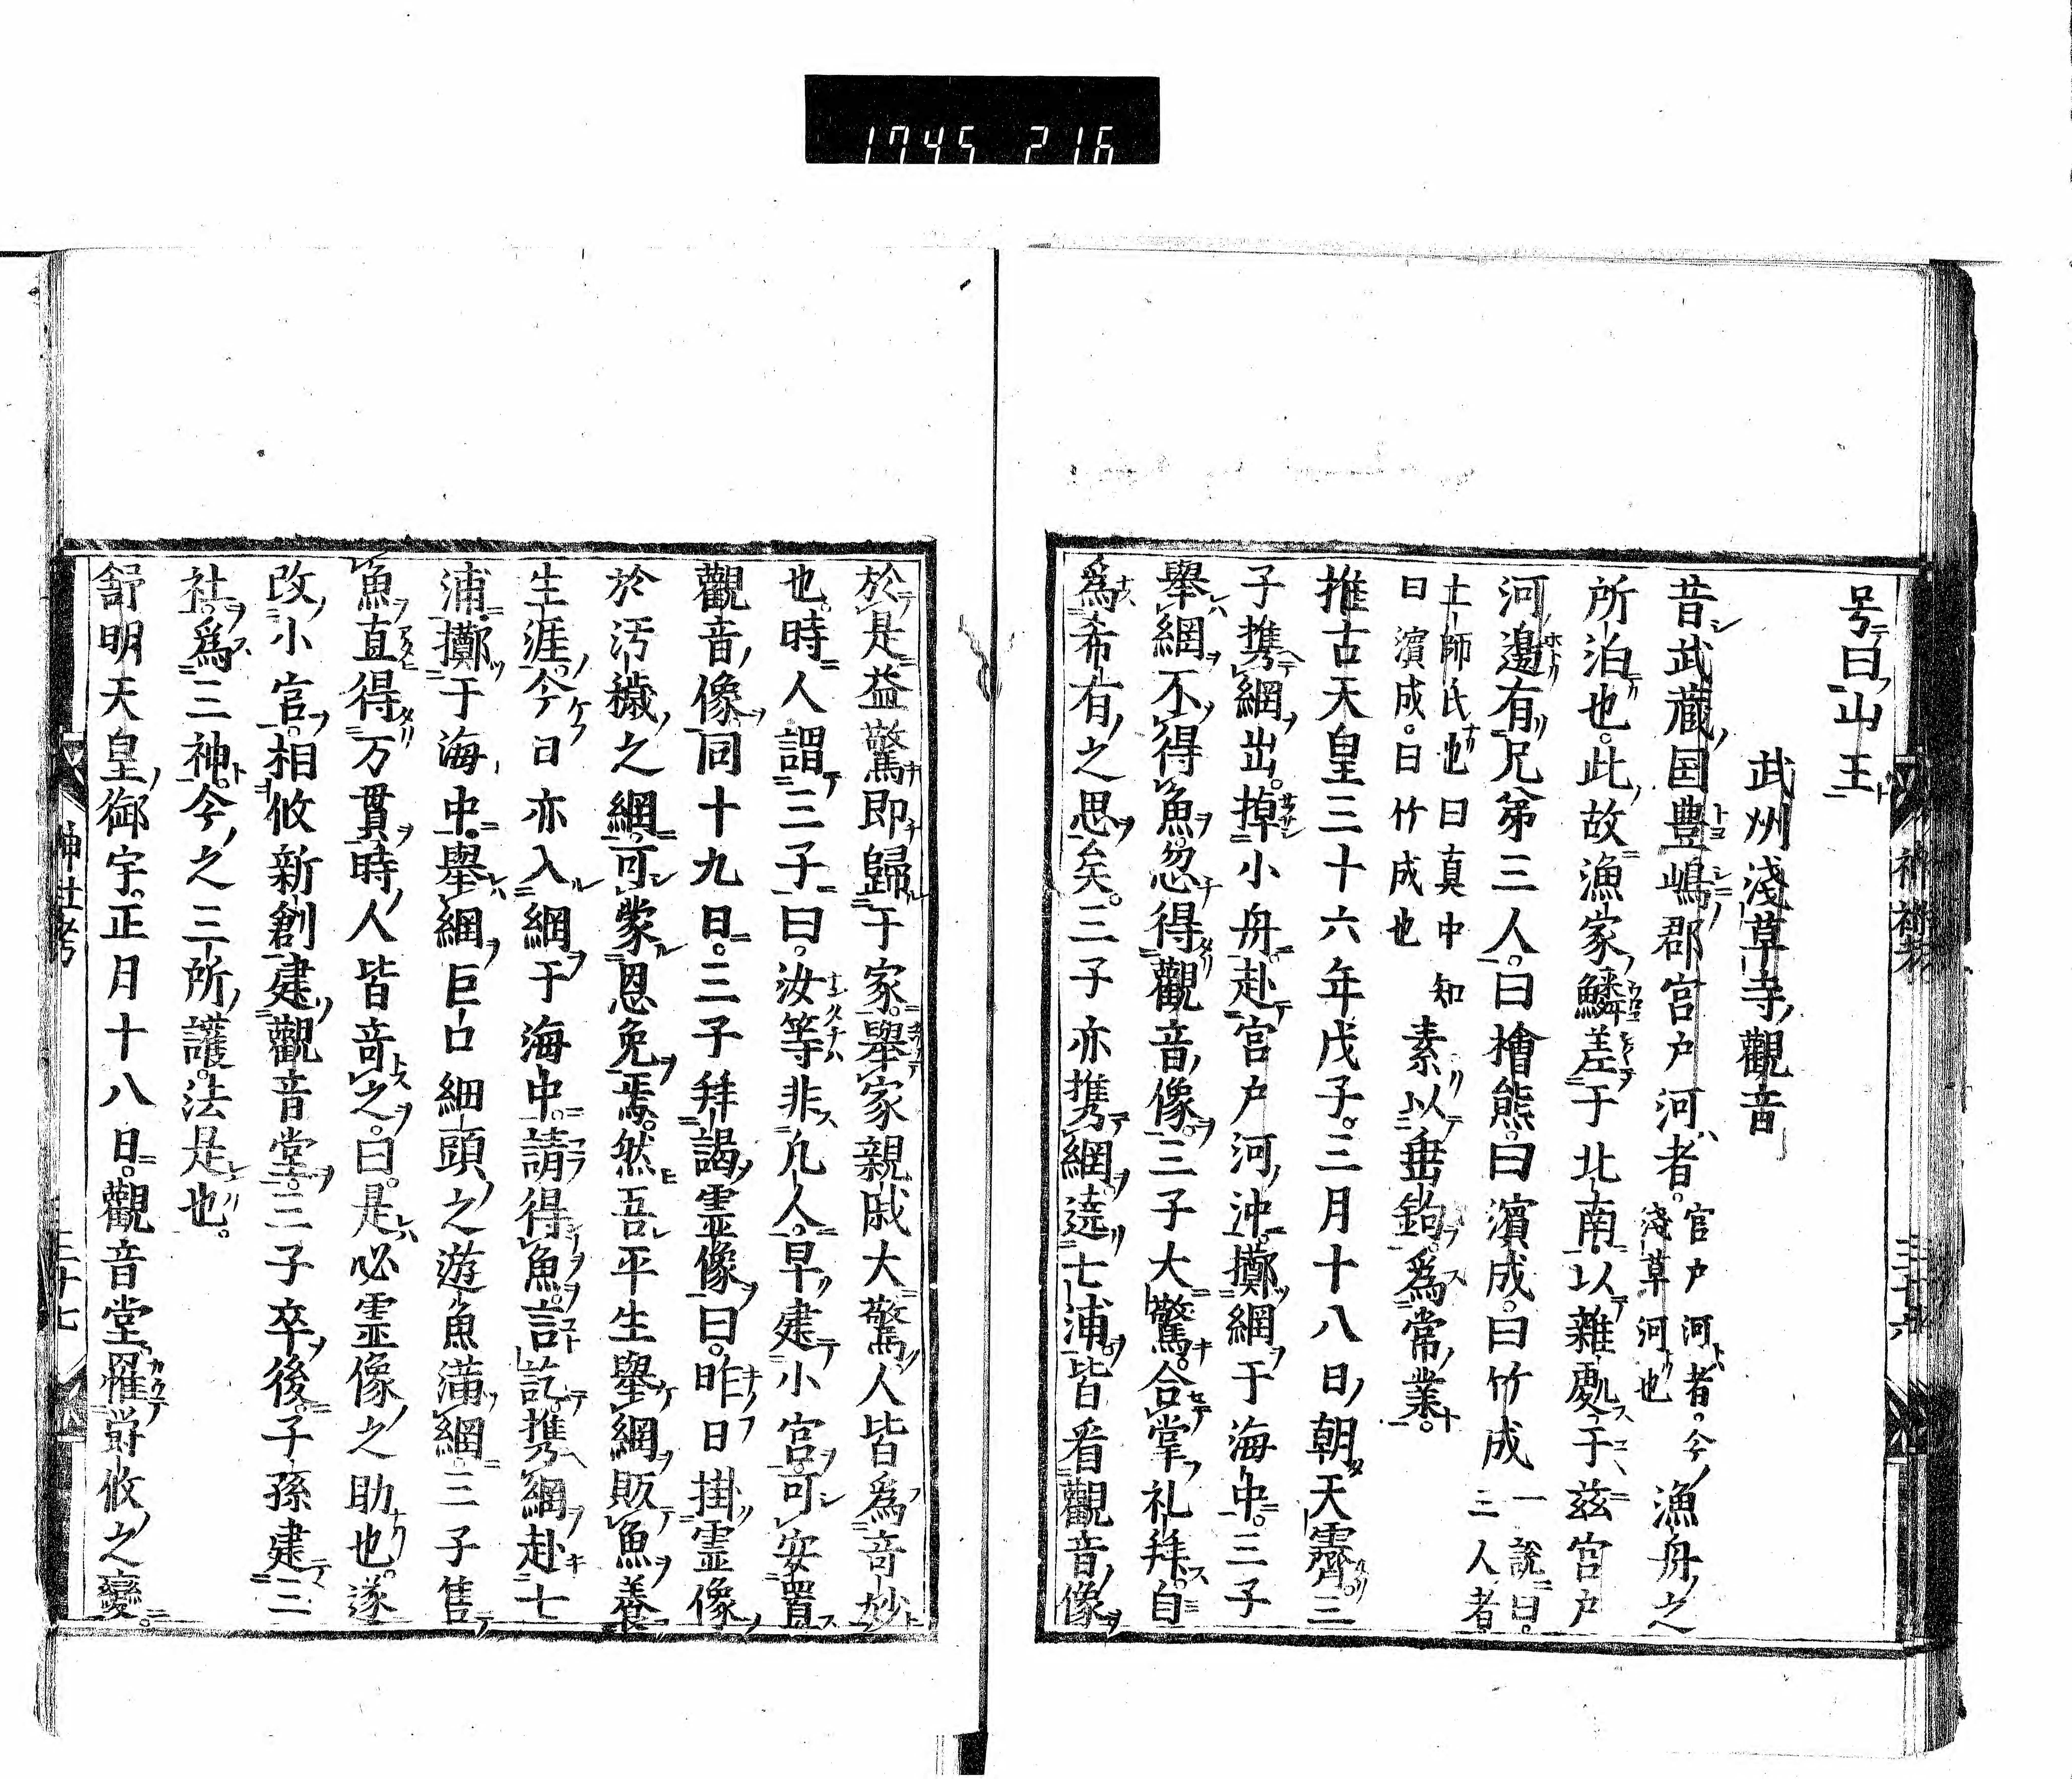 1745 216
号曰山王
武州淺草寺觀音
昔武蔵国豊嶋郡宮戸河者。宮戸河者。今淺草河也漁舟之
所泊也。此故漁家鱗差于北南。以雜處于茲宮戸
河邊有兄弟三人。曰檜熊。曰濱成。曰竹成一說曰。三人者
土師氏也曰真中知曰濱成。曰竹成也素以垂鉤。爲常業。
推古天皇三十六年戊子。三月十八日朝天霽。三
子携網出。掉小舟赴宮戸河沖。擲網于海中。三子
舉網不得魚。忽得觀音像。三子大驚。合掌礼拜。自
爲希有之思矣。三子亦携網遶七浦皆看觀音像
於是益驚即歸于家。舉家親戚大驚人皆爲奇妙
也。時人謂三子曰。汝等非凡人。早建小宮可安置
觀音像。同十九日。三子拜謁霊像曰。昨日掛霊像
於汚穢之網。可蒙恩免焉。然吾平生舉網販魚養
生涯。今日亦入網于海中。請得魚。言訖。携網赴七
浦。擲于海中。舉網巨口細頭之遊魚滿網。三子售
魚直得万貫時人皆奇之。曰。是必霊像之助也。遂
改小宮。相攸新創建觀音堂。三子卒後。子孫建三
社。爲三神。今之三所護法是也。
舒明天皇御宇。正月十八日。觀音堂罹欝攸之變。
神社考
三十七